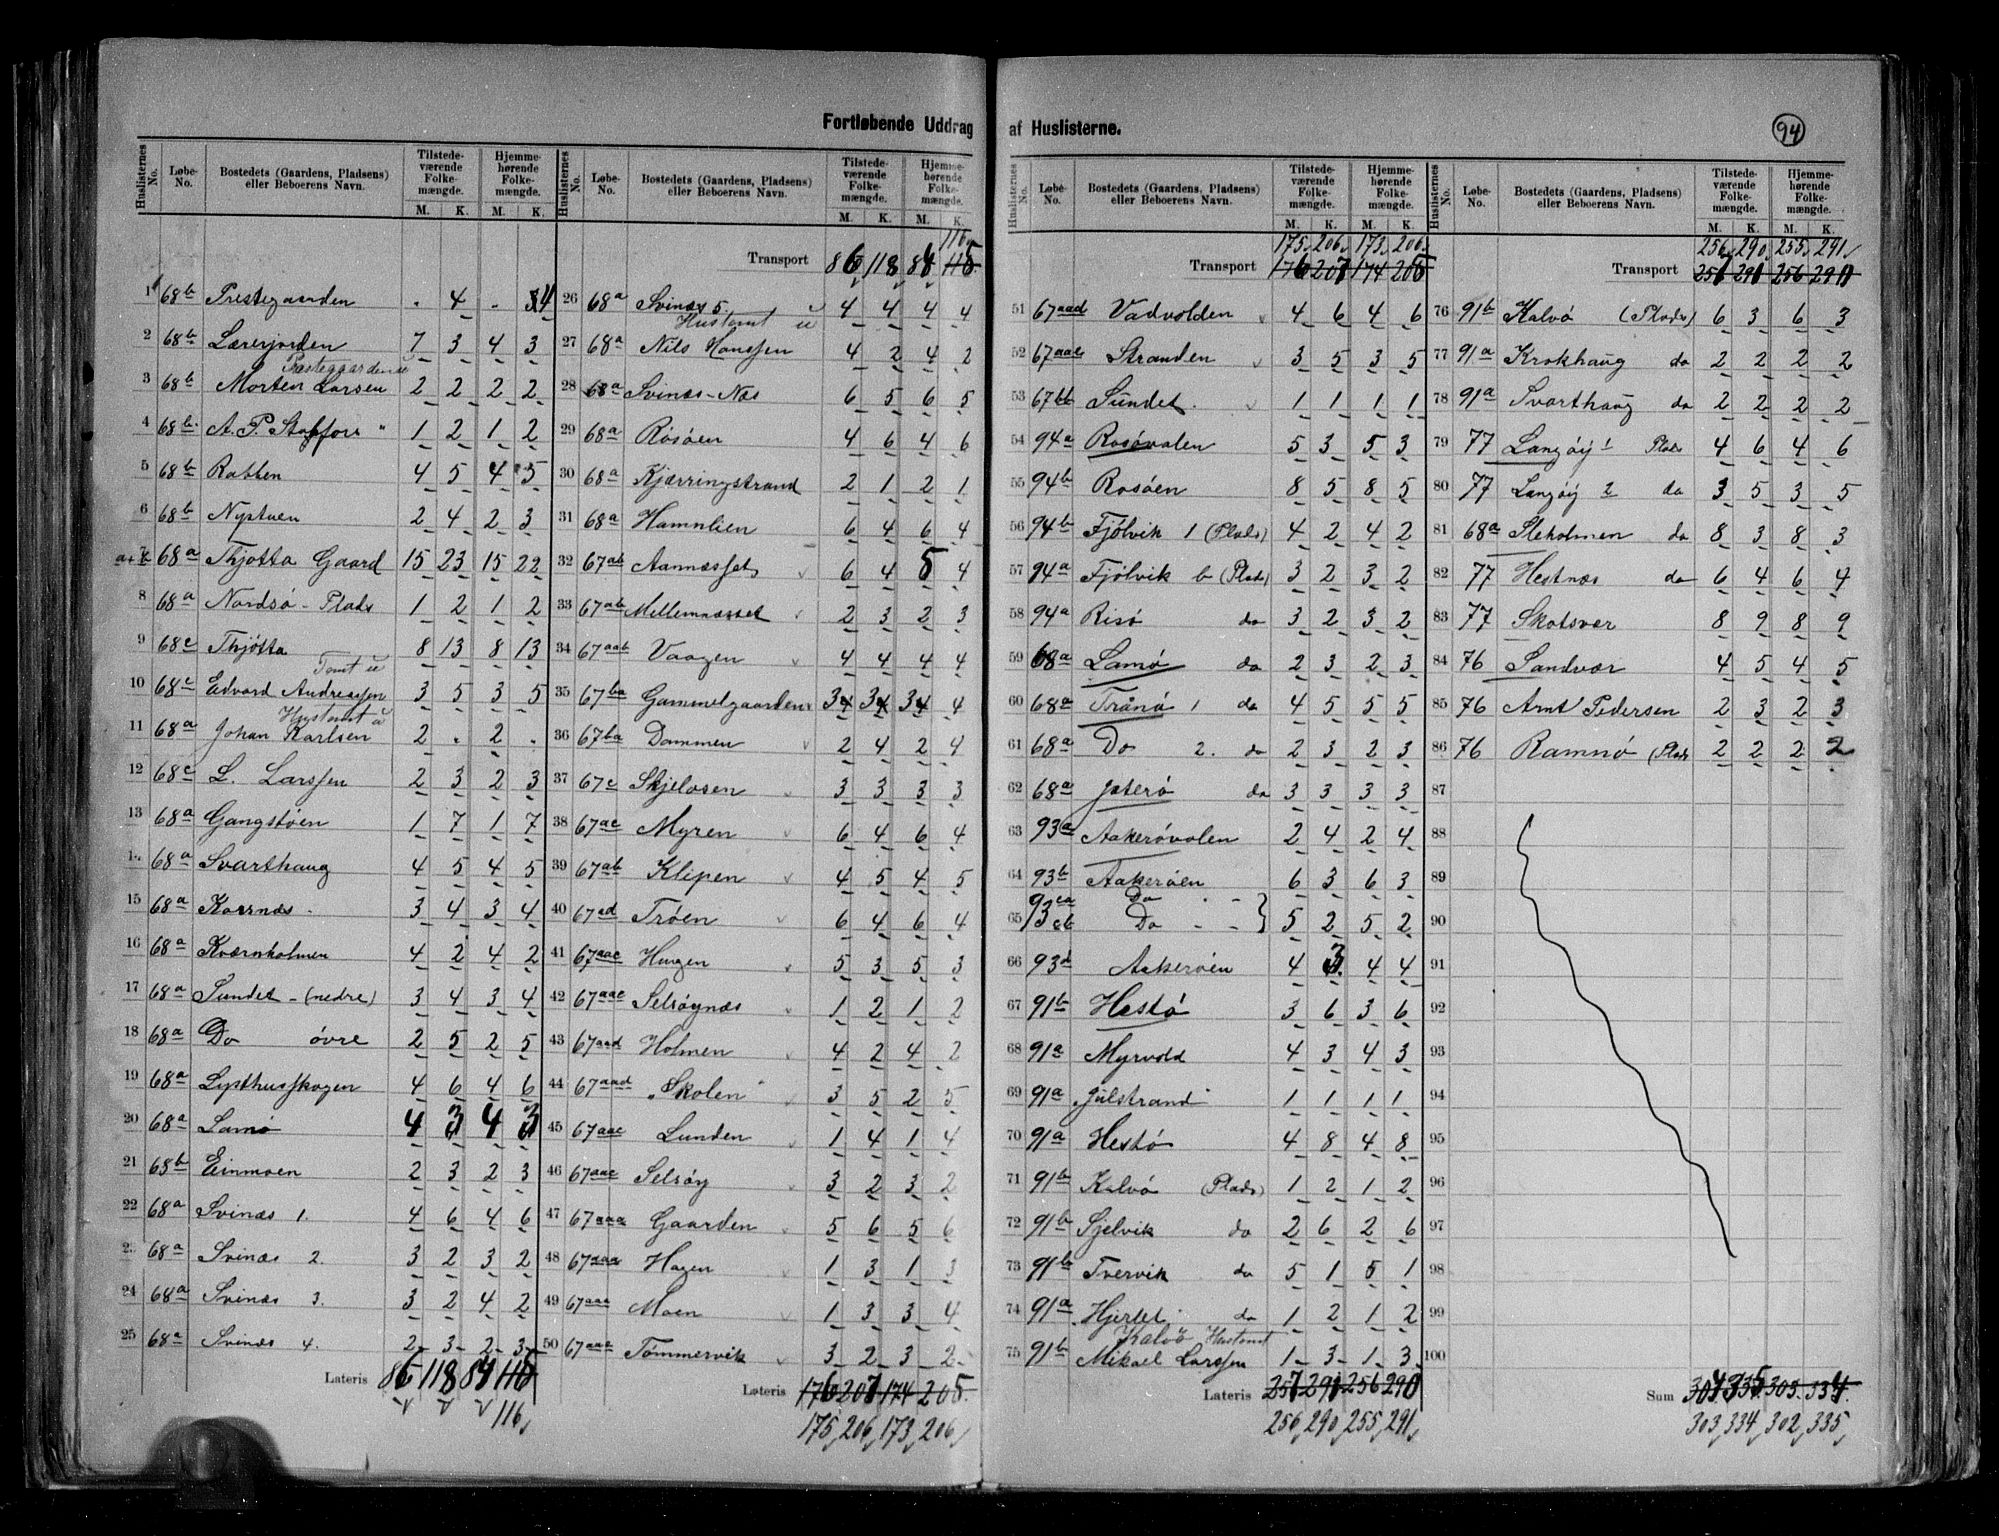 Fortløbende Uddrag af Huslisterne.
94
Huslisternes No. Løbe-No. Bostedets (Gaardens, Pladsens) eller Beboerens Navn. Tilstedeværende Folkemængde. M. K. Hjemmehørende Folkemængde. M. K.
1 68b Prestegaarden . 4 - 4
2 68b Lærerjorden 7 3 4 3
3 68b Prestegaarden u Morten Larsen 2 2 2 2
4 68b A. P. 1 2 1 2
5 68b Ratten 4 5 4 5
6 68b Nystuen 2 4 2 3
7 68a Thjøtta Gaard 15 23 15 22
8 68a Nordsø - Plads 1 2 1 2
9 68c Thjøtta 8 13 8 13
10 68c Tomt u Edvard Andreassen 3 5 3 5
11 68a Hustomt u Johan Karlsen 2 . 2 .
12 68c L. Larssen 2 3 2 3
13 68a Gangstøen 1 7 1 7
14 68a Svarthaug 4 5 4 5
15 68a Kornæs - 3 4 3 4
16 68a Kværnholmen 4 2 4 2
17 68a Sundet - (nedre) 3 4 3 4
18 68a Do øvre 2 5 2 5
19 68a Lysthusskogen 4 6 4 6
20 68a Lamø 4 3 4 3
21 68b Einmoen 2 3 2 3
22 68a Svinæs 1. 4 6 4 6
23 68a Svinæs 2. 3 2 3 2
24 68a Svinæs 3. 3 2 4 2
25 68a Svinæs 4. 2 3 2 3
Lateris 86 118 84 115
116
Huslisternes No. Løbe-No. Bostedets (Gaardens, Pladsens) eller Beboerens Navn. Tilstedeværende Folkemængde. M. K. Hjemmehørende Folkemængde. M. K.
116
Transport 86 118 84 115
26 68a Svinæs 5. 4 4 4 4
27 68a Hustomt u Nils Hanssen 4 2 4 2
28 68a Svinæs-Næs 6 5 6 5
29 68a Røsøen 4 6 4 6
30 68a Kjærringstrand 2 1 2 1
31 68a Hamnlien 6 4 6 4
32 67ab Aannæsset 6 4 5 4
33 67ab Mellemnæsset 2 3 2 3
34 67aab Vaagen 4 4 4 4
35 67ba Gammelgaarden 3 3 3 4
36 67ba Dammen 2 4 2 4
37 67c Skjelosen 3 3 3 3
38 67ac Myren 6 4 6 4
39 67ab Klipen 4 5 4 5
40 67ad Trøen 6 4 6 4
41 67aac Haugen 5 3 5 3
42 67aac Selsøynæs 1 2 1 2
43 67aad Holmen 4 2 4 2
44 67aad "Skolen" 3 5 2 5
45 67aac Lunden 1 4 1 4
46 67aac Selsøy 3 2 3 2
47 67aaa Gaarden 5 6 5 6
48 67aaa Hagen 1 3 1 3
49 67aaa Moen 1 3 3 4
50 67aac Tømmervik 3 2 3 2
Lateris 176 207 174 205
175 206 173 206
Huslisternes No. Løbe-No. Bostedets (Gaardens, Pladsens) eller Beboerens Navn. Tilstedeværende Folkemængde. M. K. Hjemmehørende Folkemængde. M. K.
175 206 173 206
Transport 176 207 174 205
51 67aad Vadvolden 4 6 4 6
52 67aac Stranden 3 5 3 5
53 67bb Sundet 1 1 1 1
54 94a Rosøvalen 5 3 5 3
55 94b Rosøen 8 5 8 5
56 94b Fjølvik 1 (Plads) 4 2 4 2
57 94a Fjølvik b (Plads) 3 2 3 2
58 94a Risø do 3 2 3 2
59 68a Lamø do 2 3 2 3
60 68a Tranø 1 do 4 5 5 5
61 68a Do 2. do 2 3 2 3
62 68a Jøterø do 3 3 3 3
63 93a Aakerøvalen 2 4 2 4
64 93b Aakerøen 6 3 6 3
93ca Do - -
65 cb Do - - 5 2 5 2
66 93d Aakerøen 4 3 4 4
67 91b Hestø 3 6 3 6
68 91a Myrvold 4 3 4 3
69 91a Julstrand 1 1 1 1
70 91a Hestø 4 8 4 8
71 91b Kalvø (Plads) 1 2 1 2
72 91b Sjelvik do 2 6 2 6
73 91b Tvervik do 5 1 5 1
74 91a Hjertet do 1 2 1 2
75 91b Kalvø Hustomt Mikael Larssen 1 3 1 3
Lateris 257 291 256 290
256 290 255 291
Huslisternes No. Løbe-No. Bostedets (Gaardens, Pladsens) eller Beboerens Navn. Tilstedeværende Folkemængde. M. K. Hjemmehørende Folkemængde. M. K.
256 290 255 291
Transport 257 291 256 290
76 91b Kalvø (Plads) 6 3 6 3
77 91a Krokhaug do 2 2 2 2
78 91a Svarthaug do 2 2 2 2
79 77 Langøy 1 Plads 4 6 4 6
80 77 Langøy 2 do 3 5 3 5
81 68a Steholmen do 8 3 8 3
82 77 Hestnæs do 6 4 6 4
83 77 Skotsvær 8 9 8 9
84 76 Sandvær 4 5 4 5
85 76 Arnt Pedersen 2 3 2 3
86 76 Ramnø (Plads 2 2 2 2
87
88
89
90
91
92
93
94
95
96
97
98
99
100
Sum 304 335 303 334
303 334 302 335